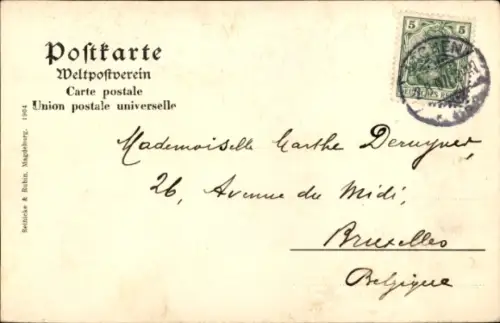 Postkarte
Weltpostverein
Carte postale
Union postale universelle
Reinicke & Rubin, Magdeburg. 1904
5 5
Mademoiselle Marthe
26, Avenue du Midi,
Bruxelles
Belgique